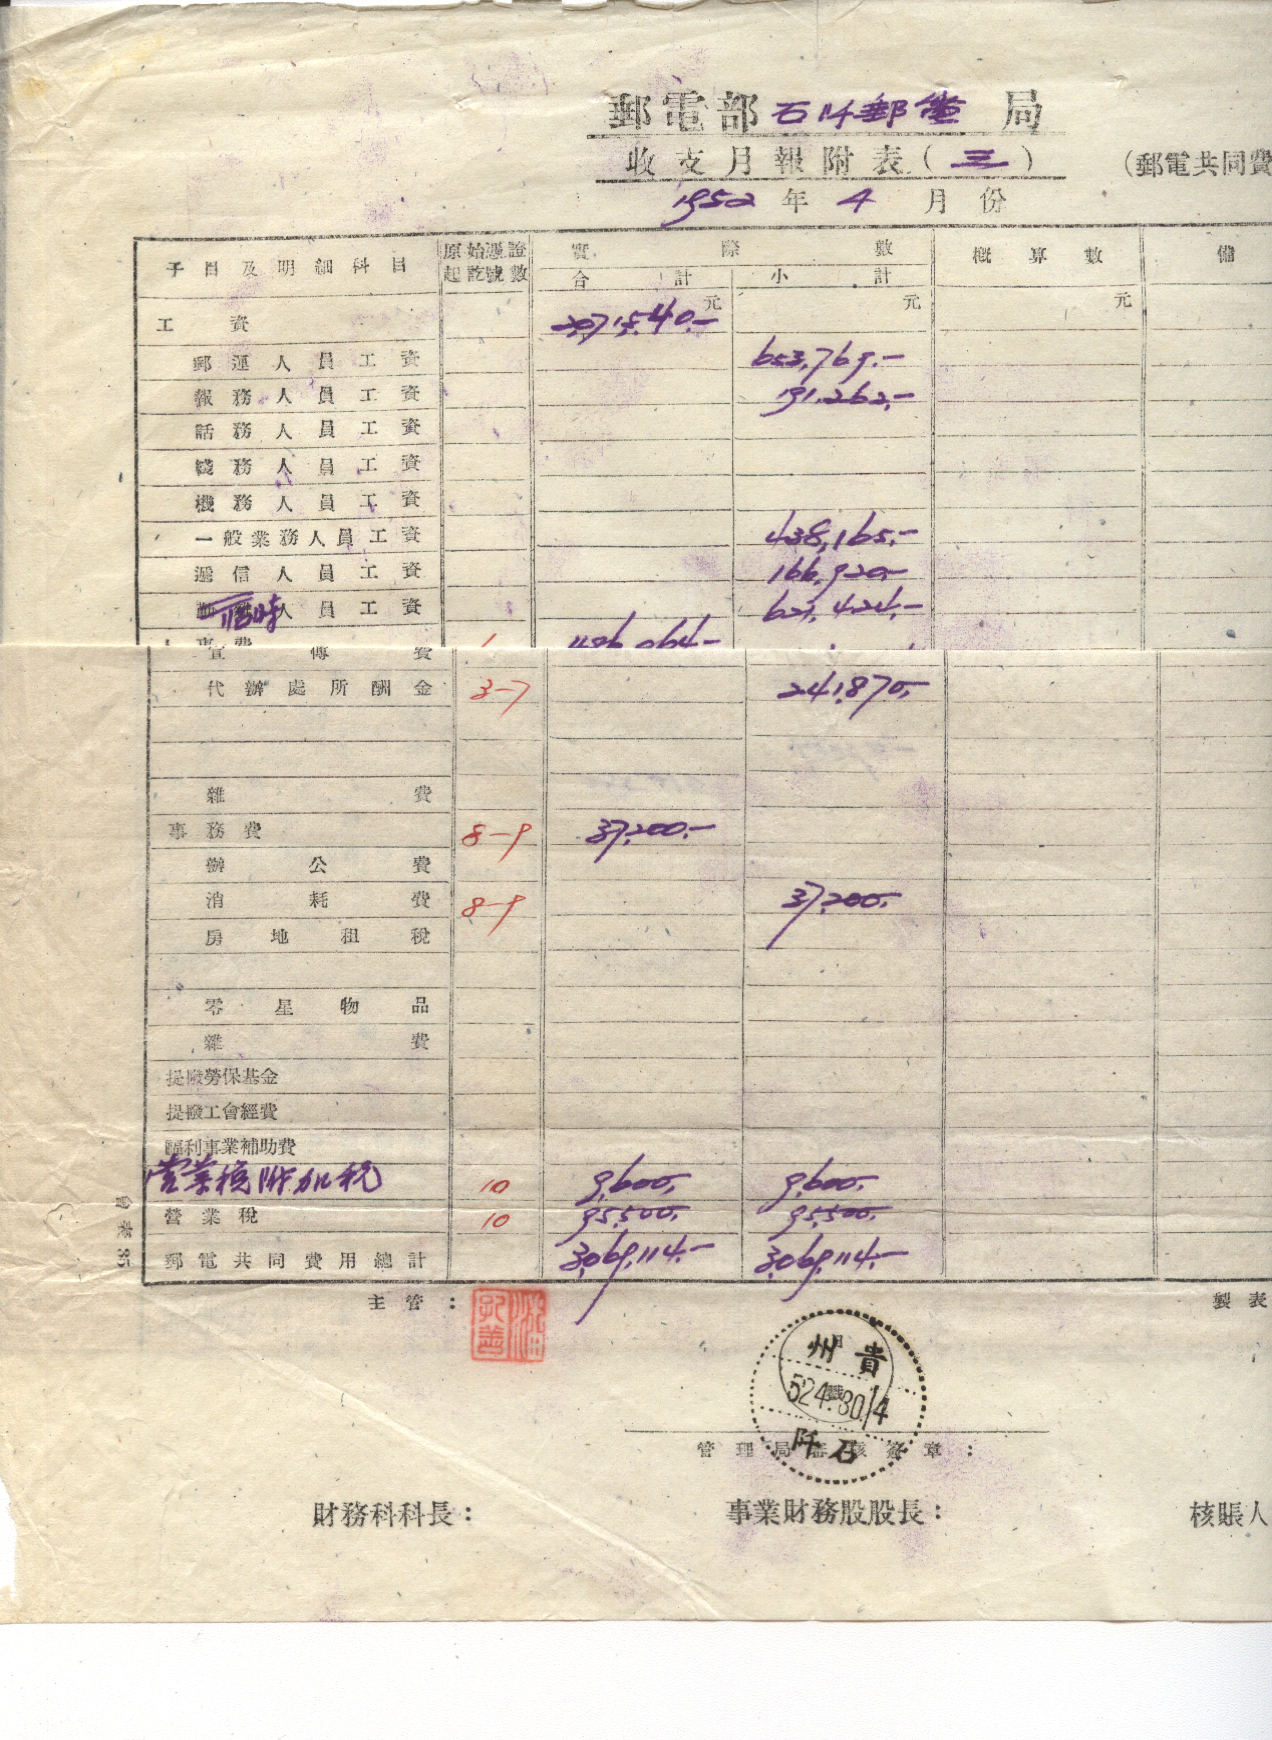 郵電部石阡郵電局
收支月報附表(三)
(郵電共同費
1952年4月份
子目及明細科目 原始憑證起訖號數 實際數 概算數 備
合計 小計
元 元 元
工資 2,071,540.-
郵運人員工資 653,769.-
報務人員工資 191,262.-
話務人員工資
綫務人員工資
機務人員工資
一般業務人員工資 438,165.-
遞信人員工資 166,920.-
臨時人員工資 621,424.-
事費 1
宣傳費
代辦處所酬金 3-7 241,870.-
雜費
事務費 8-9 37,200.-
辦公費
消耗費 8-9 37,200.-
房地租稅
零星物品
雜費
提撥勞保基金
提撥工會經費
福利事業補助費
营業稅附加稅 10 9,600.- 9,600.-
營業稅 10 95,500.- 95,500.-
郵電共同費用總計 3,069,114.- 3,069,114.-
主管： 製表
貴州
52.4.30.14
石阡
管理局審核簽章：
財務科科長： 事業財務股股長： 核賬人